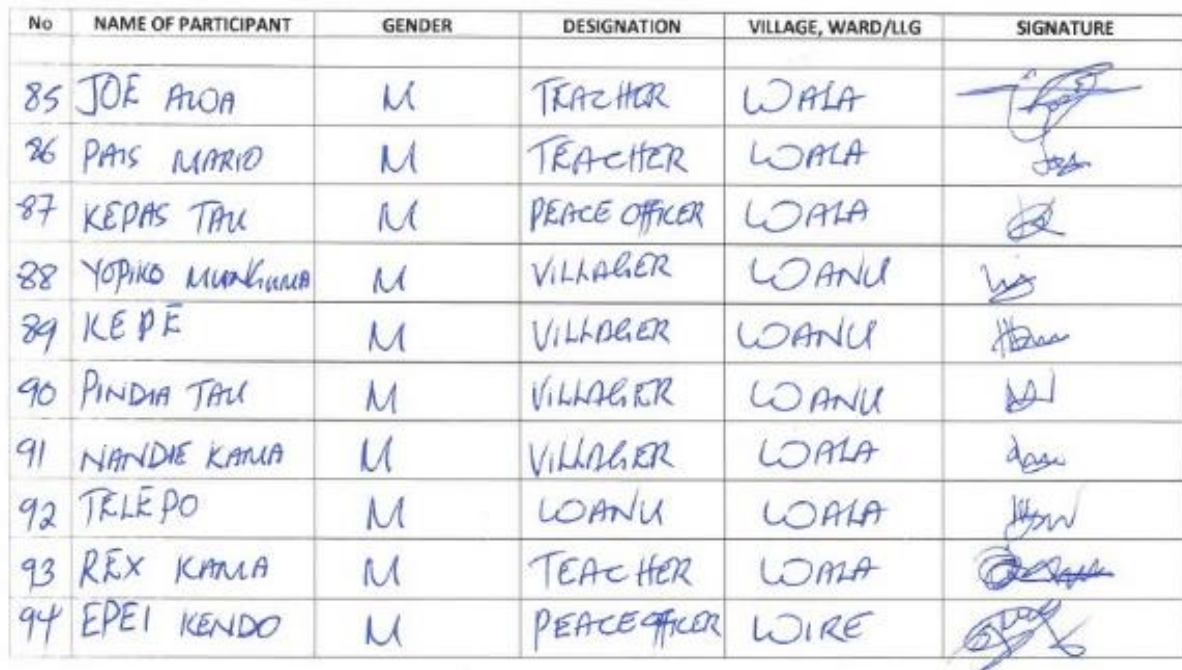 No NAME OF PARTICIPANT GENDER DESIGNATION VILLAGE, WARD/LLG SIGNATURE
85 JOE AWA M TEACHER WALA
86 PAIS MARIO M TEACHER WALA
87 KEPAS TAU M PEACE OFFICER WALA
88 YOPIKO M VILLAGER WANU
89 KEPE M VILLAGER WANU
90 PINDIA TAU M VILLAGER WANU
91 NANDIE KAMA M VILLAGER WALA
92 TELEPO M WANU WALA
93 REX KAMA M TEACHER WALA
94 EPEI KENDO M PEACE OFFICER WIRE